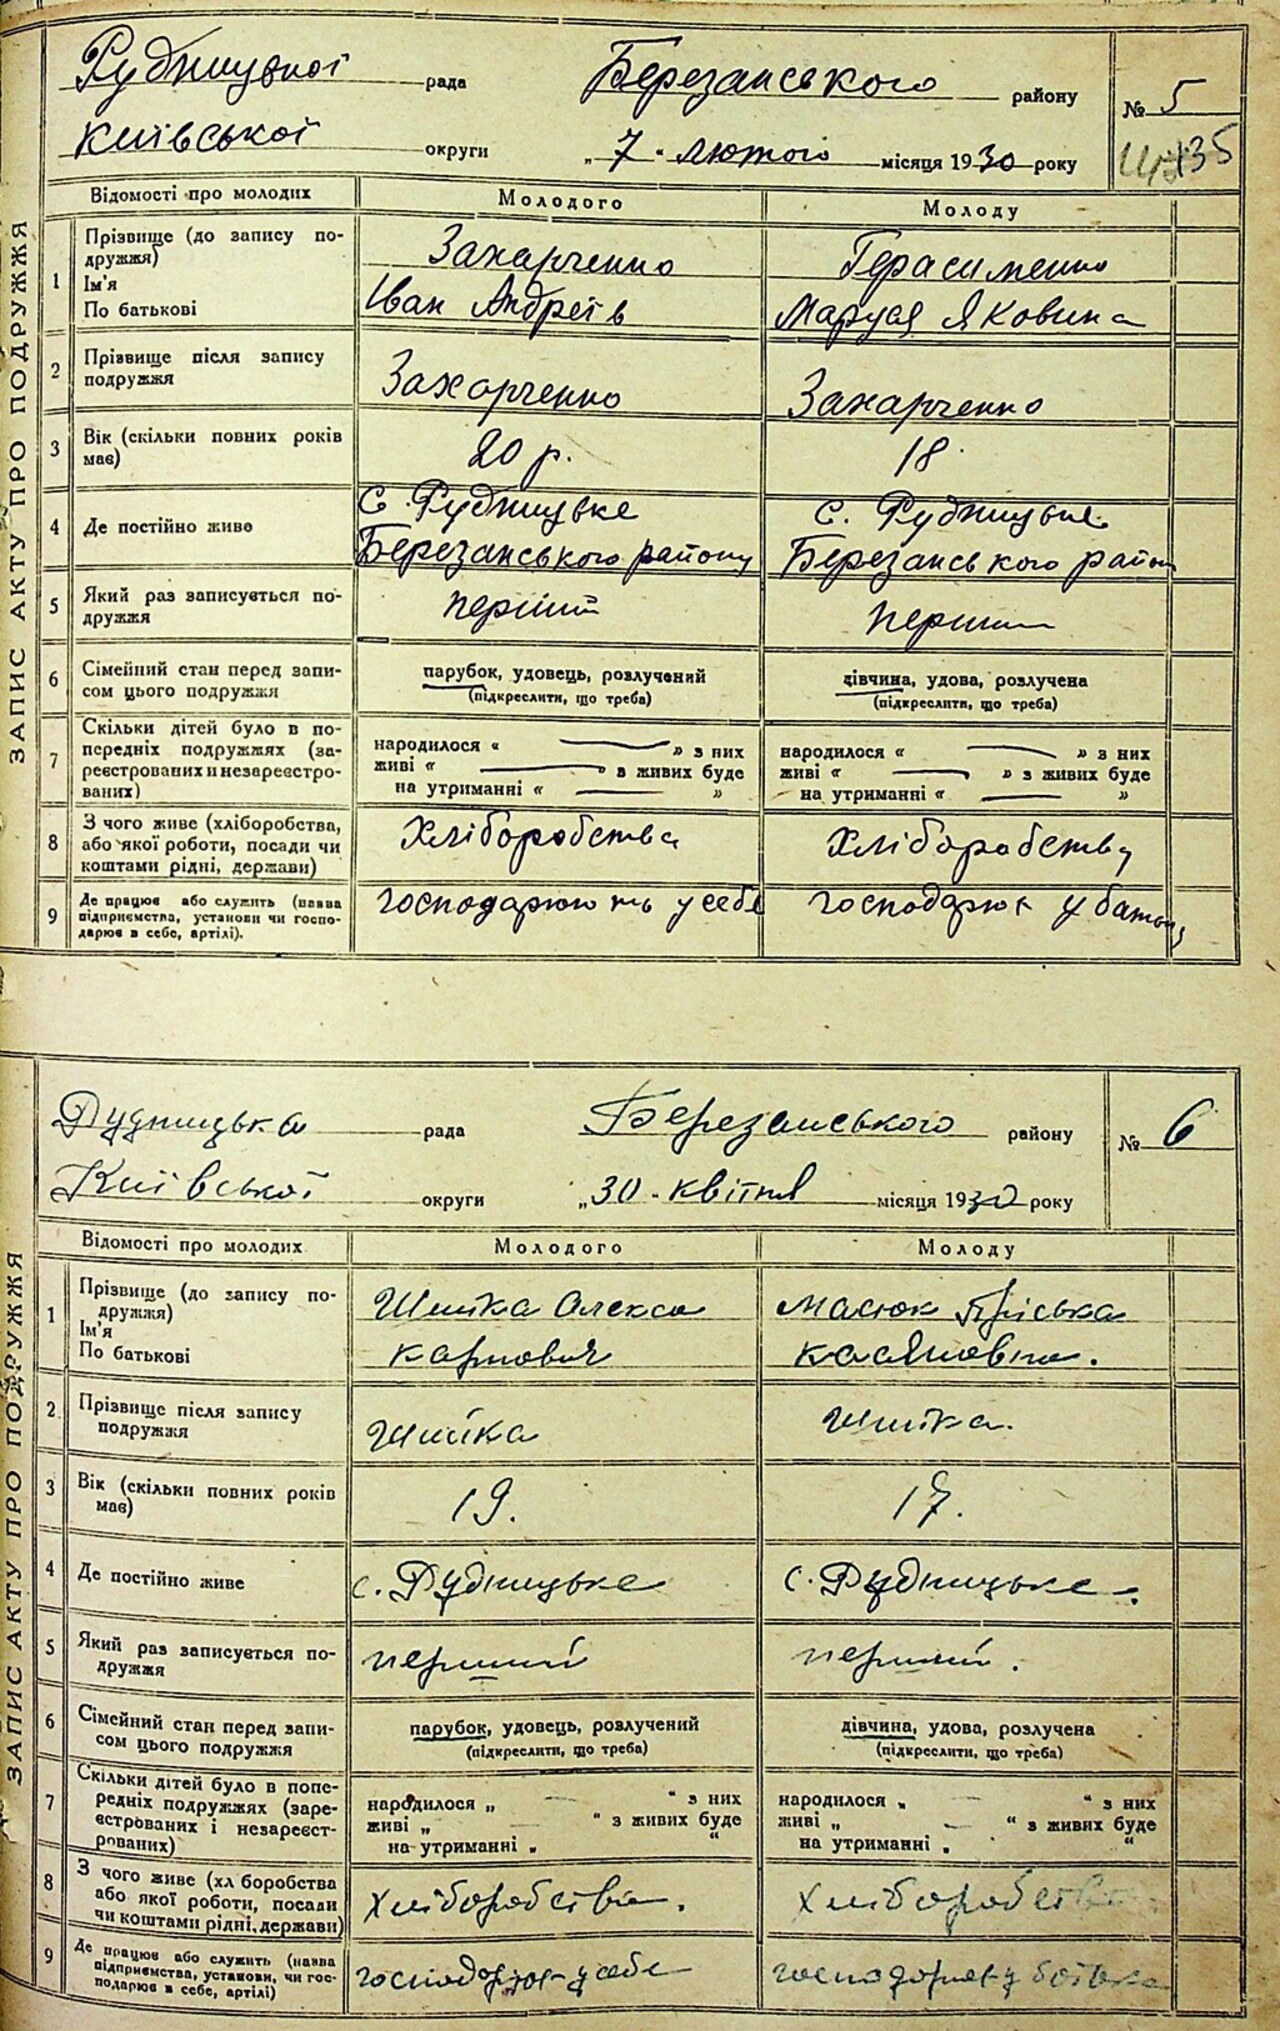 Рудницької рада Березанського району № 5
Київської округи „ 7 " лютого місяця 1930 року 135
ЗАПИС АКТУ ПРО ПОДРУЖЖЯ
Відомості про молодих Молодого Молоду
1 Прізвище (до запису по-
дружжя) Захарченко Герасименко
Ім'я
По батькові Іван Андреїв Маруся Яковина
2 Прізвище після запису
подружжя Захарченко Захарченко
3 Вік (скільки повних років
має) 20 р. 18
4 Де постійно живе с. Рудницьке с. Рудницьке
Березанського району Березанського район
5 Який раз записується по-
дружжя перший перший
6 Сімейний стан перед запи-
сом цього подружжя
парубок, удовець, розлучений дівчина, удова, розлучена
(підкреслити, що треба) (підкреслити, що треба)
7 Скільки дітей було в по-
передніх подружжях (за-
реєстрованих и незареєстро-
ваних)
народилося « » з них народилося « » з них
живі « » з живих буде живі « » з живих буде
на утриманні « » на утриманні « »
8 З чого живе (хліборобства,
або якої роботи, посади чи
коштами рідні, держави) Хліборобства Хліборобства
9 Де працює або служить (назва
підприємства, установи чи госпо-
дарює в себе, артілі).
господарюють у себе господарює у
Рудницька рада Березанського району № 6
Київської округи „ 30 - квітня місяця 1930 року
ЗАПИС АКТУ ПРО ПОДРУЖЖЯ
Відомості про молодих Молодого Молоду
1 Прізвище (до запису по-
дружжя) Шийка Олекса Масюк Пріська
Ім'я
По батькові Карпович Касяновна.
2 Прізвище після запису
подружжя Шийка Шийка.
3 Вік (скільки повних років
має) 19. 17.
4 Де постійно живе с. Рудницьке с. Рудницьке.
5 Який раз записується по-
дружжя перший перший.
6 Сімейний стан перед запи-
сом цього подружжя
парубок, удовець, розлучений дівчина, удова, розлучена
(підкреслити, що треба) (підкреслити, що треба)
7 Скільки дітей було в попе-
редніх подружжях (заре-
єстрованих і незареєст-
рованих)
народилося „ — " з них народилося „ — " з них
живі „ " з живих буде живі „ — " з живих буде
на утриманні „ " на утриманні „ "
8 З чого живе (хл боробства
або якої роботи, посади
чи коштами рідні, держави) Хліборобства. Хліборобства
9 Де працює або служить (назва
підприємства, установи, чи гос-
подарює в себе, артілі)
господарює у себе господарює у батька